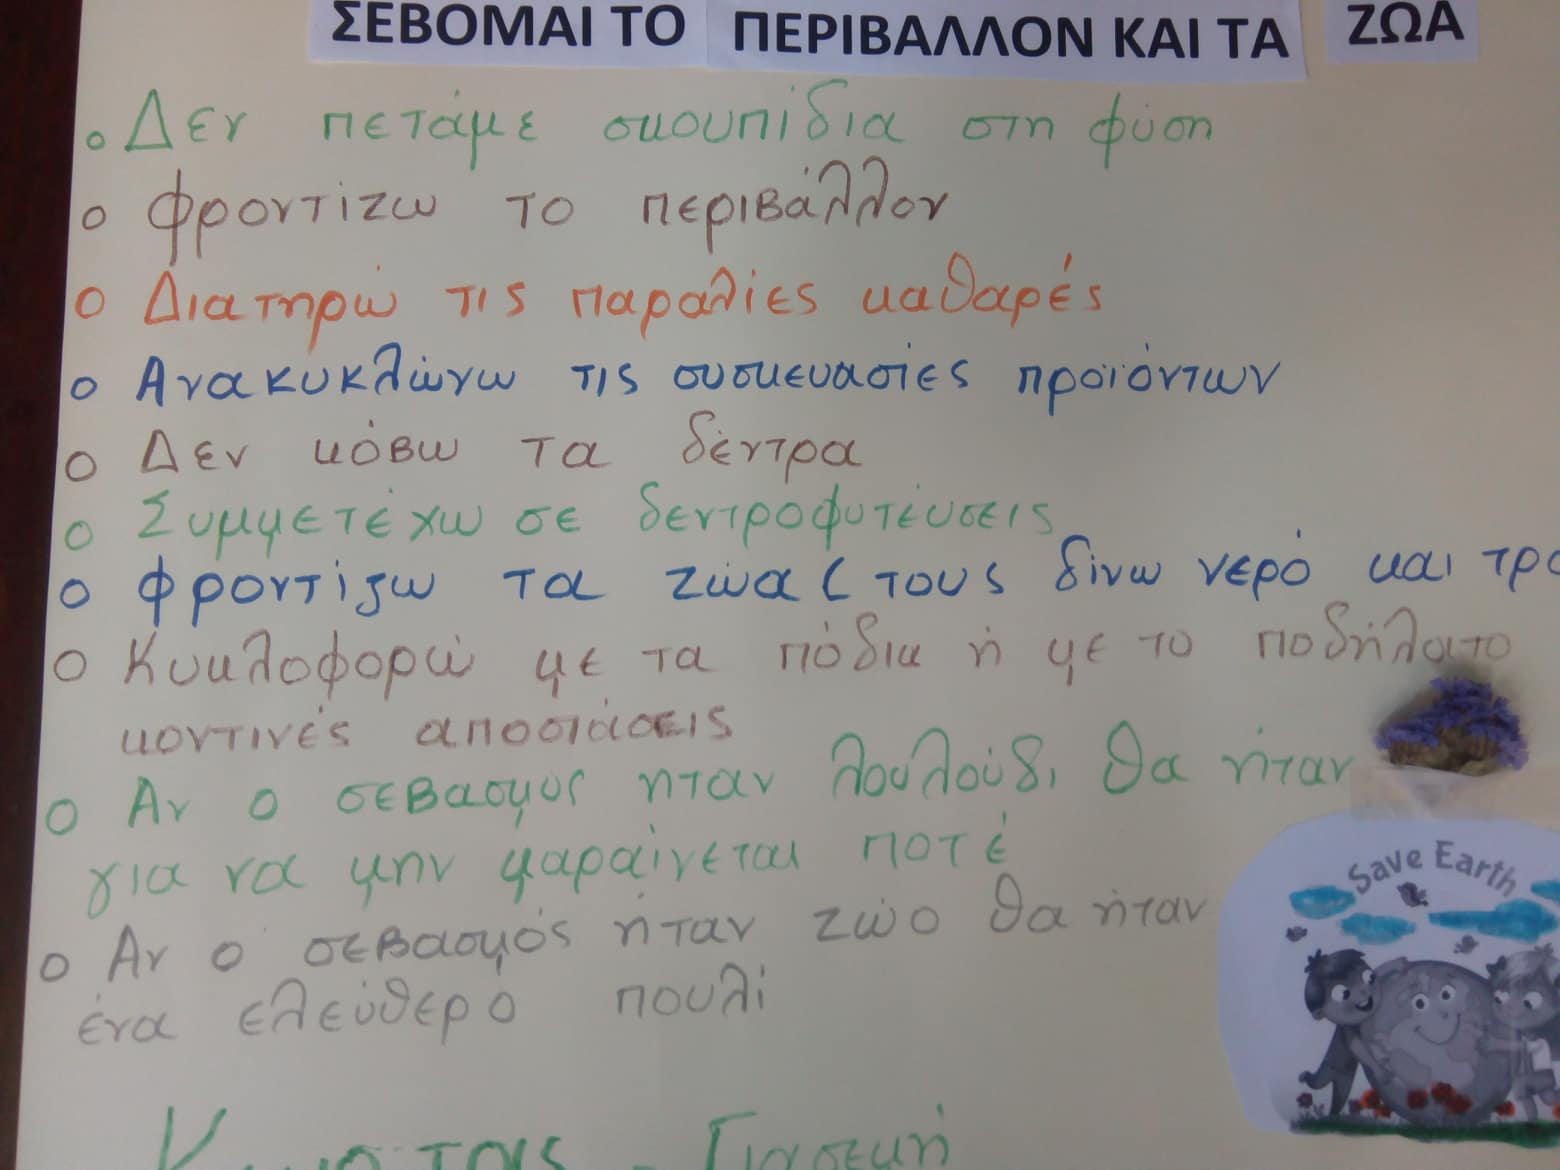 ΣΕΒΟΜΑΙ ΤΟ ΠΕΡΙΒΑΛΛΟΝ ΚΑΙ ΤΑ ΖΩΑ
Δεν πετάμε σκουπίδια στη φύση
φροντίζω το περιβάλλον
Διατηρώ τις παραλίες καθαρές
Ανακυκλώνω τις συσκευασίες προϊόντων
Δεν κόβω τα δέντρα
Συμμετέχω σε δεντροφυτεύσεις
φροντίζω τα ζώα ( τους δίνω νερό και
Κυκλοφορώ με τα πόδια ή με το ποδήλατο
κοντινές αποστάσεις
Αν ο σεβασμός ήταν λουλούδι θα ήταν
για να μην μαραίνεται ποτέ
Αν ο σεβασμός ήταν ζώο θα ήταν
ένα ελεύθερο πουλί
Save Earth